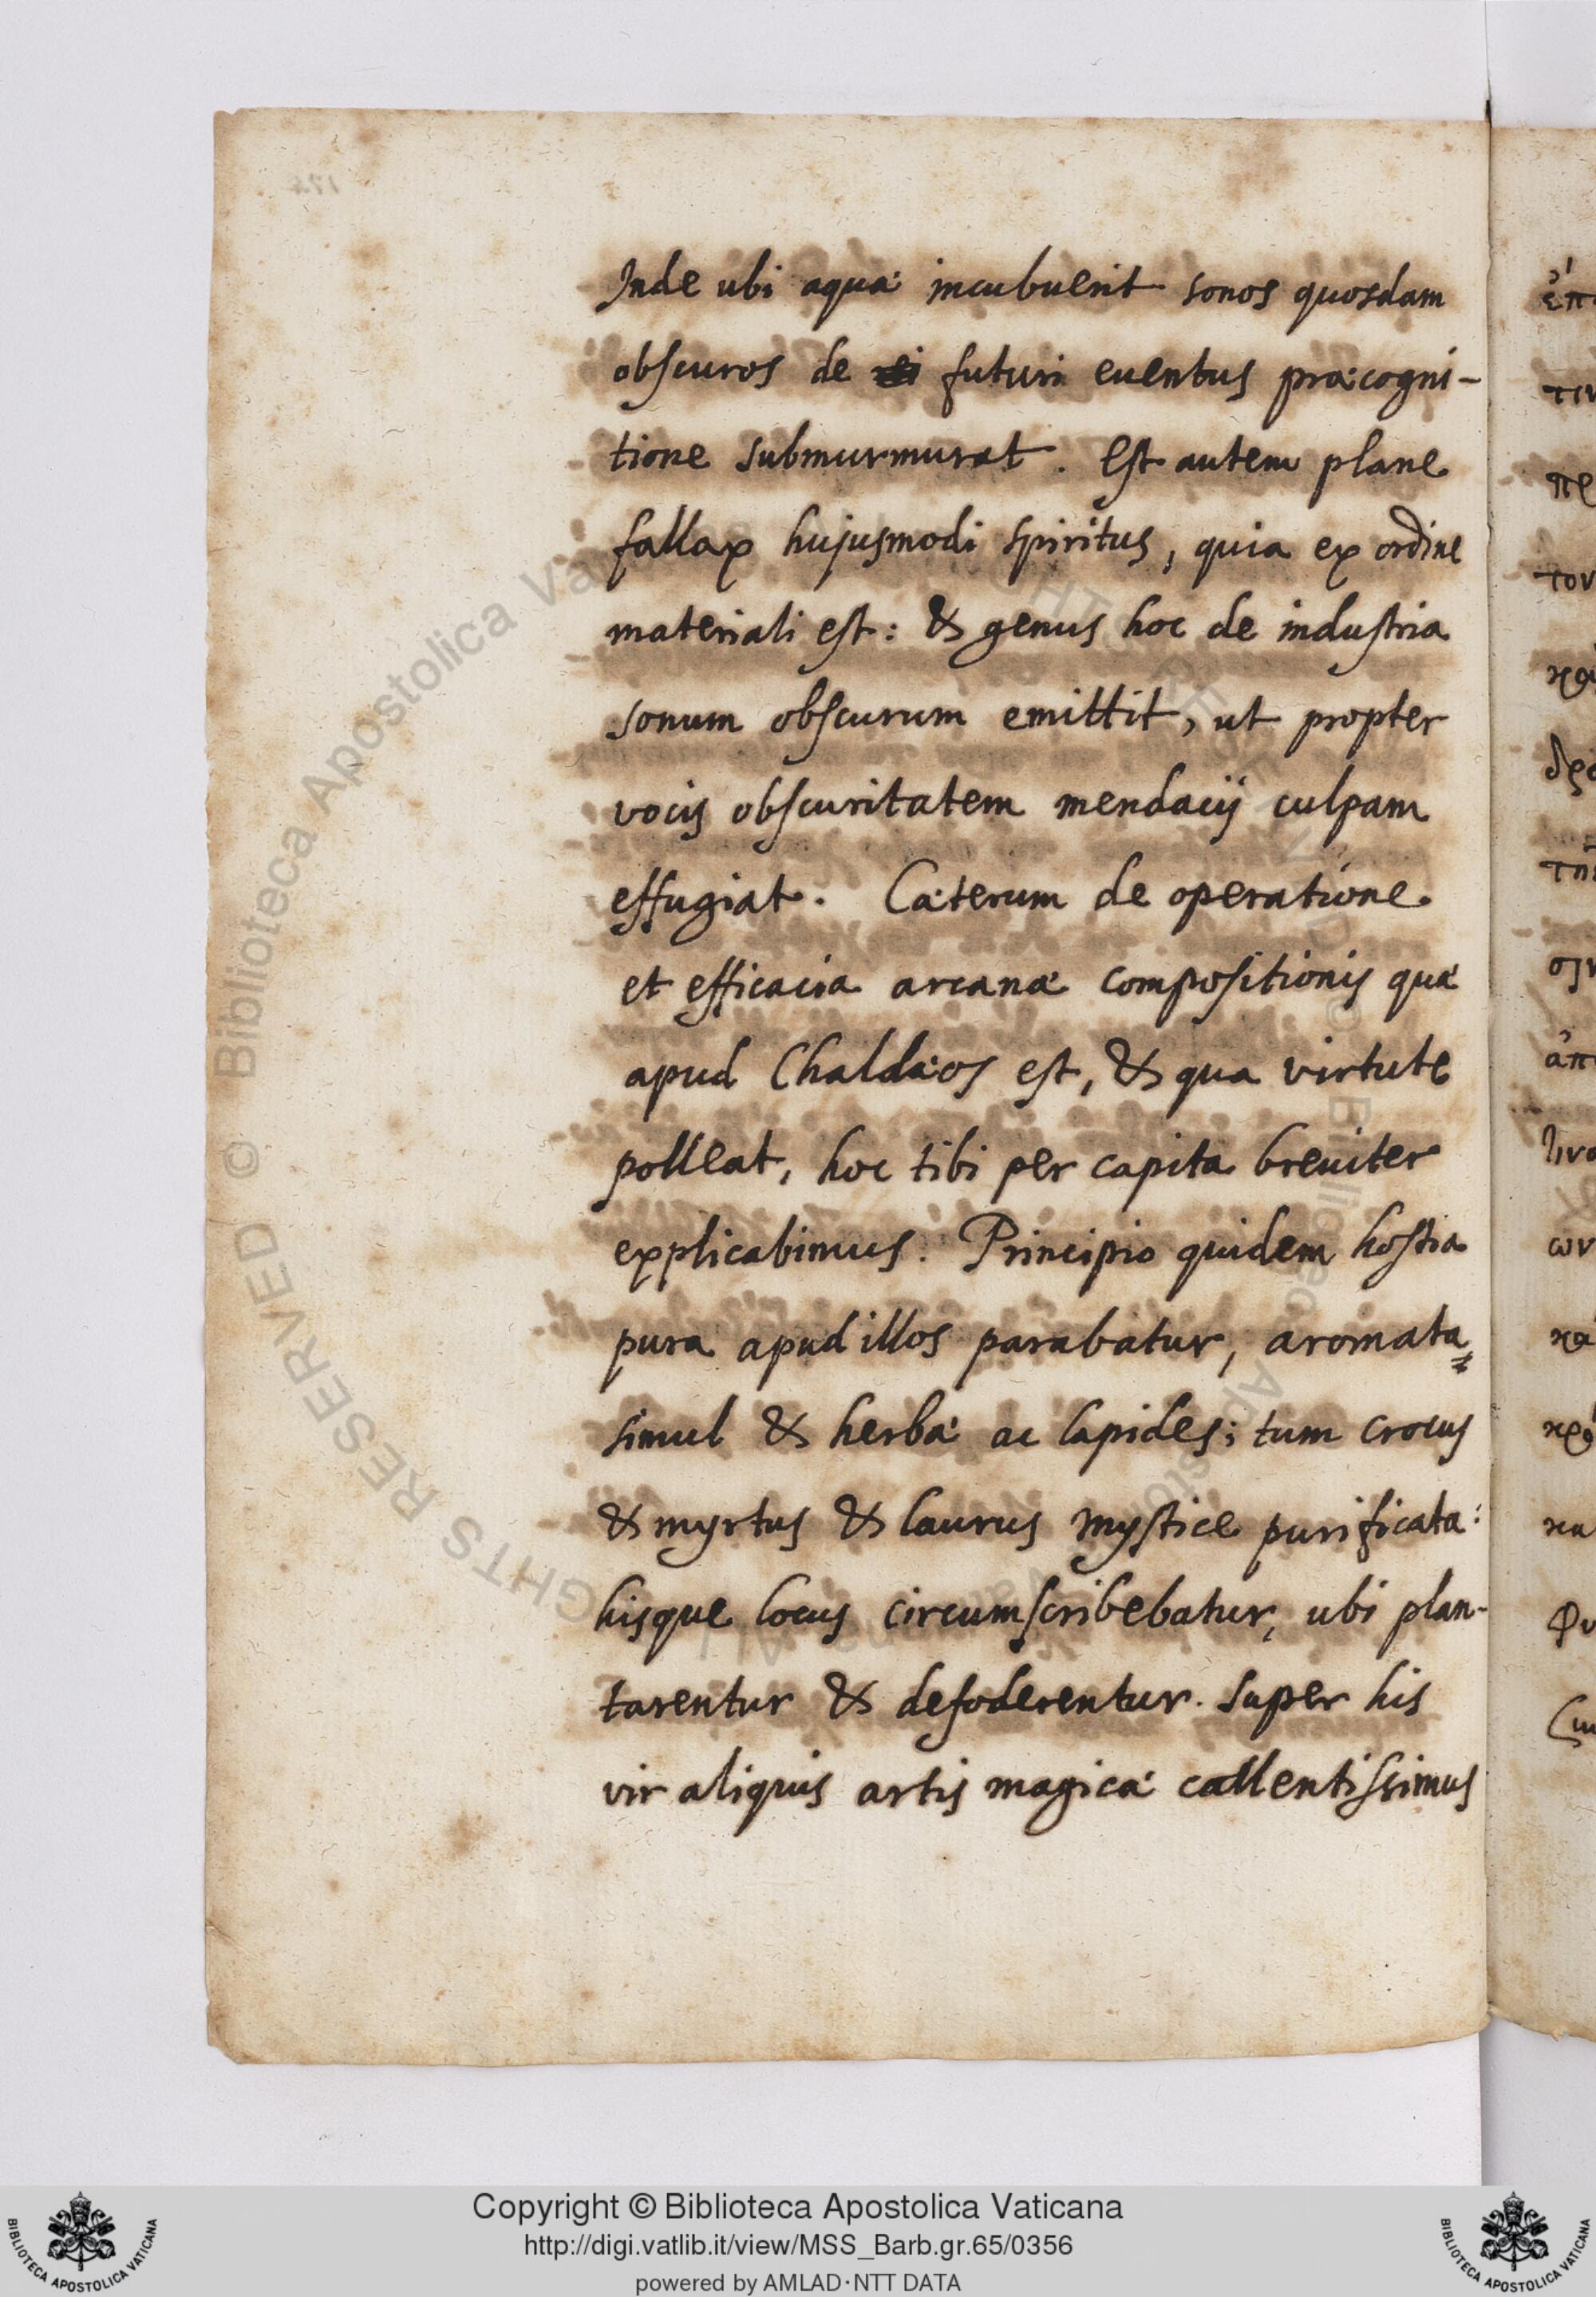 Inde ubi aquæ incubuerit sonos quosdam
obscuros de futuri euentus præcogni-
tione submurmurat. Est autem plane
fallax hujusmodi spiritus, quia ex ordine
materiali est: & genus hoc de industria
sonum obscurum emittit, ut propter
vocis obscuritatem mendacij culpam
effugiat. Cæterum de operatione
et efficacia arcanæ compositionis quæ
apud Chaldæos est, & qua virtute
polleat, hoc tibi per capita breuiter
explicabimus. Principio quidem hostia
pura apud illos parabatur, aromata
simul & herbæ ac lapides; tum crocus
& myrtus & laurus mystice purificata:
hisque locus circumscribebatur, ubi plan-
tarentur & defoderentur. Super his
vir aliquis artis magicæ callentissimus
© Biblioteca Apostolica Vaticana
RIGHTS RESERVED
Copyright © Biblioteca Apostolica Vaticana
http://digi.vatlib.it/view/MSS_Barb.gr.65/0356
powered by AMLAD·NTT DATA
BIBLIOTECA APOSTOLICA VATICANA
BIBLIOTECA APOSTOLICA VATICANA